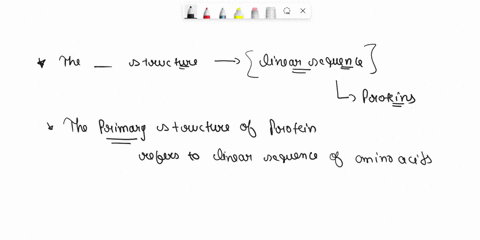 * The __ structure → [linear sequence]
↳ Proteins
* The Primary structure of Protein
refers to linear sequence of amino acids